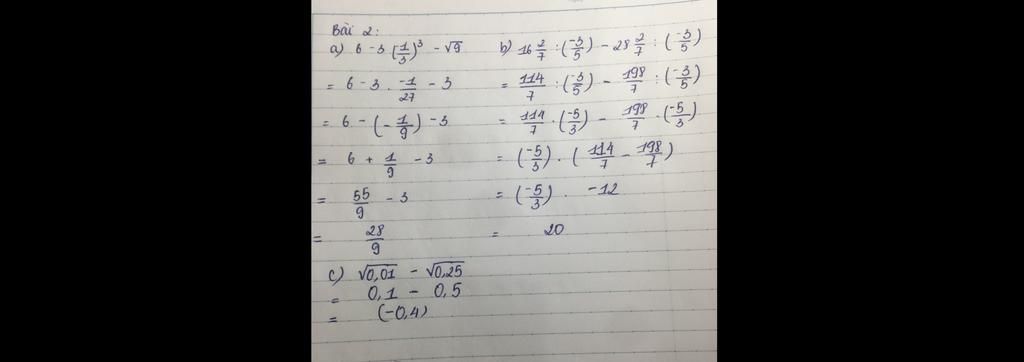 Bài 2:
a) 6 - 3 (1/3)³ - √9
= 6 - 3 . -1/27 - 3
= 6 - (-1/9) - 3
= 6 + 1/9 - 3
= 55/9 - 3
= 28/9
b) 16 2/7 : (-3/5) - 28 2/7 : (-3/5)
= 114/7 : (-3/5) - 198/7 : (-3/5)
= 114/7 . (-5/3) - 198/7 . (-5/3)
= (-5/3) . (114/7 - 198/7)
= (-5/3) . -12
= 20
c) √0,01 - √0,25
= 0,1 - 0,5
= (-0,4)